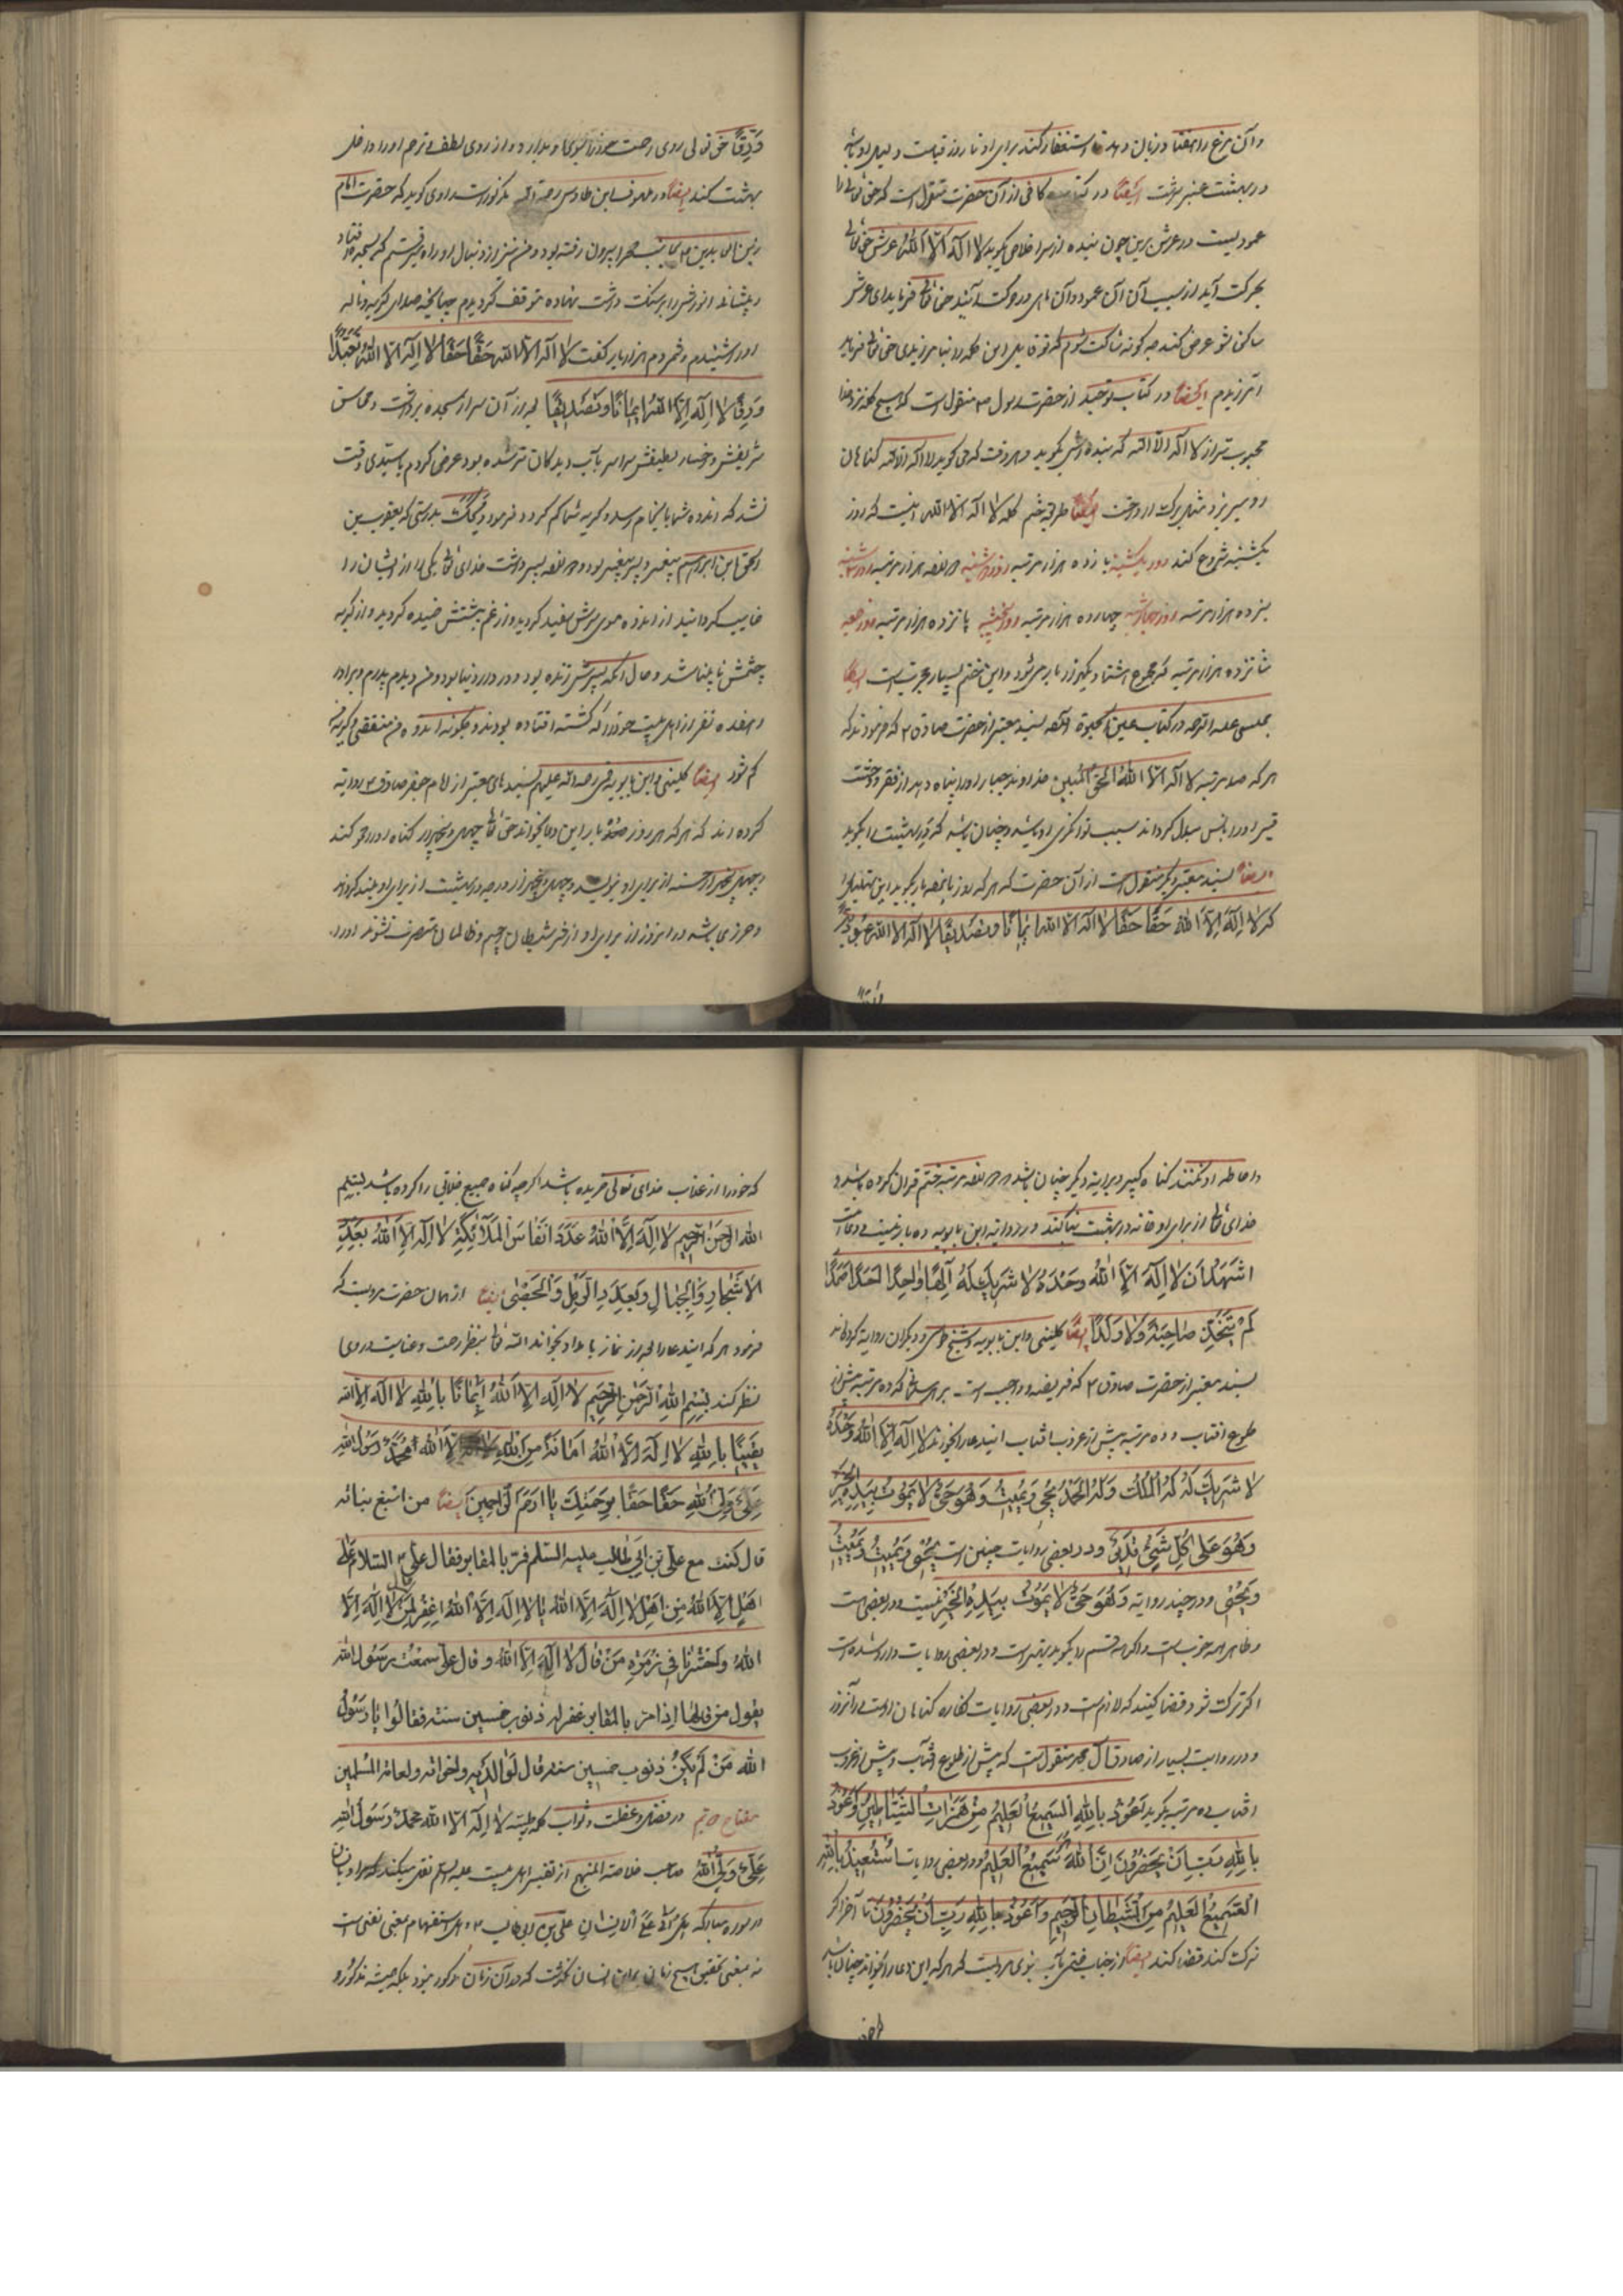 و آن مرغ را هفتاد زبان دهد استغفار کند برای او تا روز قیامت و لیلی او باشد
در بهشت عنبر سرشت ایضاً در کتاب کافی از آن حضرت منقول است که حق تعالی را
عمودیست در عرش برین چون بنده از سر اخلاص بگوید لا اله الا الله عرش حق تعالی
بحرکت آید از سبب آن آن عمود و آن ماهی در حرکت آیند حق تعالی فرماید ای عرش
ساکن شو عرض کند چه گونه ساکت شوم که تو قایل این کلمه را نیامرزیدی حق تعالی فرماید
آمرزیدم ایضاً در کتاب توحید از حضرت رسول منقول است که هیچ کلمه نزد خدا
محبوب تر از لا اله الا الله که بنده اش بگوید و هر وقت که می گوید لا اله الا الله گناهان
او میریزد مثل برگ از درخت ایضاً طریق ختم کلمه لا اله الا الله اینست که روز
یکشنبه شروع کند روز یکشنبه یازده هزار مرتبه روز دوشنبه دوازده هزار مرتبه روز سه شنبه
سیزده هزار مرتبه روز چهارشنبه چهارده هزار مرتبه روز پنجشنبه پانزده هزار مرتبه روز جمعه
شانزده هزار مرتبه که مجموع هشتاد و یکهزار بار می شود و این ختم بسیار مجرب است ایضاً
مجلسی علیه الرحمه در کتاب عین الحیوة بسند معتبر از حضرت صادق ع که فرمودند که
هر که صد مرتبه لا اله الا الله الحق المبین خداوند جبار او را پناه دهد از فقر و وحشت
قبر او را بانس مبدل گرداند سبب توانگری او باشد و چنان باشد که در بهشت را بکوبد
ایضاً بسند معتبر دیگر منقول است از آن حضرت که هر که روز پانصد بار بگوید این تهلیل را
که لا اله الا الله حقا حقا لا اله الا الله ایمانا و تصدیقا لا اله الا الله عبودیة
ورقا حق تعالی روی رحمت خود را بسوی او بدارد و از روی لطف و ترحم او را داخل
بهشت کند ایضاً در ملهوف ابن طاوس رحمه الله مذکور است راوی گوید که حضرت امام
زین العابدین ع بجانب صحرا بیرون رفته بود و من نیز از دنبال او راه می رفتم که بسجده افتاد
و پیشانی انورش را بر سنگ درشت نهاده متوقف گردیدم چنانچه صدای گریه و ناله
او را شنیدم و شمردم هزار بار گفت لا اله الا الله حقا حقا لا اله الا الله تعبدا
و رقا لا اله الا الله ایمانا و تصدیقا بعد از آن سر از سجده برداشت و محاسن
شریفش و رخسار لطیفش سراسر بآب دیدگان تر شده بود عرض کردم یا سیدی وقت
نشد که اندوه شما بانجام رسد و گریه شما کم گردد فرمود ویحک بدرستی که یعقوب بن
اسحق ابن ابراهیم پیغمبر و پسر پیغمبر بود دوازده پسر داشت خدای تعالی یکی را از ایشان را
غایب گردانید از اندوه موی سرش سفید گردید و از غم پشتش خمیده گردید و از گریه
چشمش نابینا شد و حال آنکه پسرش زنده بود و در دار دنیا بود و من دیدم پدرم و برادر
و هفده نفر از اهل بیت خود را که کشته افتاده بودند و چگونه اندوه من منقضی و گریه من
کم شود ایضاً کلینی و ابن بابویه قمی رحمة الله علیهم بسندهای معتبر از امام جعفر صادق ع روایة
کرده اند که هر که هر روز بار این دعا بخواند حق تعالی چهل و پنجهزار گناه او را محو کند
و چهل و پنجهزار حسنه از برای او بنویسد و چهل و پنجهزار درجه در بهشت از برای او بلند گرداند
و حرزی باشد در آنروز از برای او از شر شیطان رجیم و ظالمان متصرف نشوند او را
واقا
و احاطه او نکنند گناه کبیره و بروایة دیگر چنان باشد دوازده مرتبه ختم قرآن کرده باشد و
خدای تعالی از برای او خانه در بهشت بنا کند و در روایة ابن بابویه ده بار نیست دعا اینست
اشهد ان لا اله الا الله وحده لا شریک له الها واحدا احدا صمدا
لم یتخذ صاحبة ولا ولدا ایضاً کلینی و ابن بابویه و شیخ طوسی و دیگران روایة کرده اند
بسند معتبر از حضرت صادق ع که فریضه و واجب است بر هر مسلمانی که ده مرتبه پیش از
طلوع آفتاب و ده مرتبه پیش از غروب آفتاب ایندعا را بخواند لا اله الا الله وحده
لا شریک له له الملک وله الحمد یحیی ویمیت وهو حی لا یموت بیده الخیر
وهو علی کل شیء قدیر و در بعضی روایات چنین است یحیی ویمیت ویمیت
ویحیی و در چند روایة وهو حی لا یموت بیده الخیر نیست و در بعضی است
و ظاهر همه خوبست و اگر همه قسم را بگوید بهتر است و در بعضی روایات وارد شده است
اگر ترک شود قضا کنید که لازم است و در بعضی روایات کفاره گناهان اوست در آنروز
و در روایت بسیار از صادق آل محمد منقول است که پیش از طلوع آفتاب و پیش از غروب
آفتاب ده مرتبه بگوید نعوذ بالله السمیع العلیم من همزات الشیاطین واعوذ
بالله رب ان یحضرون ان الله السمیع العلیم و در بعضی روایات استعیذ بالله
السمیع العلیم من الشیطان الرجیم واعوذ بالله رب ان یحضرون تا آخر اگر
ترک کند قضا کند ایضاً از جناب ختمی مآب نبوی مرویست که هر که این دعا را بخواند چنان باشد
که خود را از عذاب خدای تعالی خریده باشد اگر چه گناه جمیع خلایق را کرده باشد بسم
الله الرحمن الرحیم لا اله الا الله عدد انفاس الملائکة لا اله الا الله بعدد
الاشجار والجبال وبعدد الرمل والحصی ایضاً از همان حضرت مرویست که
فرمود هر که ایندعا را بعد از نماز بامداد بخواند الله تعالی بنظر رحمت و عنایت در وی
نظر کند بسم الله الرحمن الرحیم لا اله الا الله ایمانا بالله لا اله الا الله
یقینا بالله لا اله الا الله امانة من الله الا الله محمد رسول الله
علی ولی الله حقا حقا برحمتک یا ارحم الراحمین ایضاً من اصبغ بن نباته
قال کنت مع علی بن ابی طالب علیه السلم فمر بالمقابر فقال علی ع السلام علی
اهل لا اله الا الله من اهل لا اله الا الله یا لا اله الا الله اغفر لمن قال لا اله الا
الله واحشرنا فی زمرة من قال لا اله الا الله وقال علی سمعت رسول الله
یقول من قالها اذا مر بالمقابر غفر له ذنوب خمسین سنة فقالوا یا رسول
الله من لم یکن ذنوب خمسین سنة قال لوالدیه ولاخوانه ولعامة المسلمین
مفتاح در فضل و عظمت و ثواب کلمه طیبه لا اله الا الله محمد رسول الله
علی ولی الله صاحب خلاصة المنهج از تفسیر اهل بیت علیه السلم نقل میکند
در سوره مبارکه هل اتی علی الانسان علی بن ابی طالب ع و هل استفهام بمعنی نفی است
نه بمعنی تحقیق هیچ زمان بر این انسان نگذشت که در آن زمان مذکور نبود بلکه همیشه مذکور و